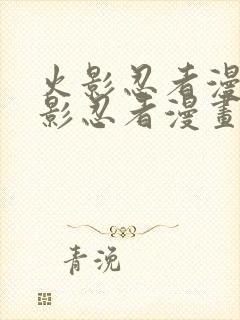 火影忍者漫
影忍者漫畫
青浼